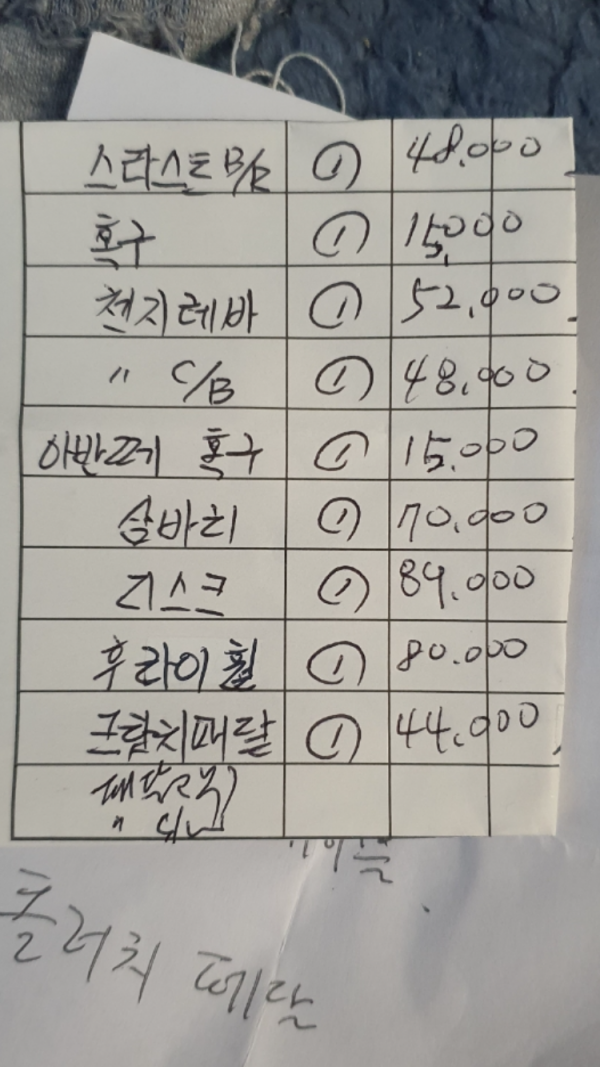 스타스트B/R ① 48.000
혹구 ① 15,000
첸지레바 ① 52.000
" C/B ① 48.000
아반떼 혹구 ① 15.000
삼바리 ① 70.000
디스크 ① 89.000
후라이휠 ① 80.000
크럽치패달 ① 44.000
패달고무
"
클러치 페달